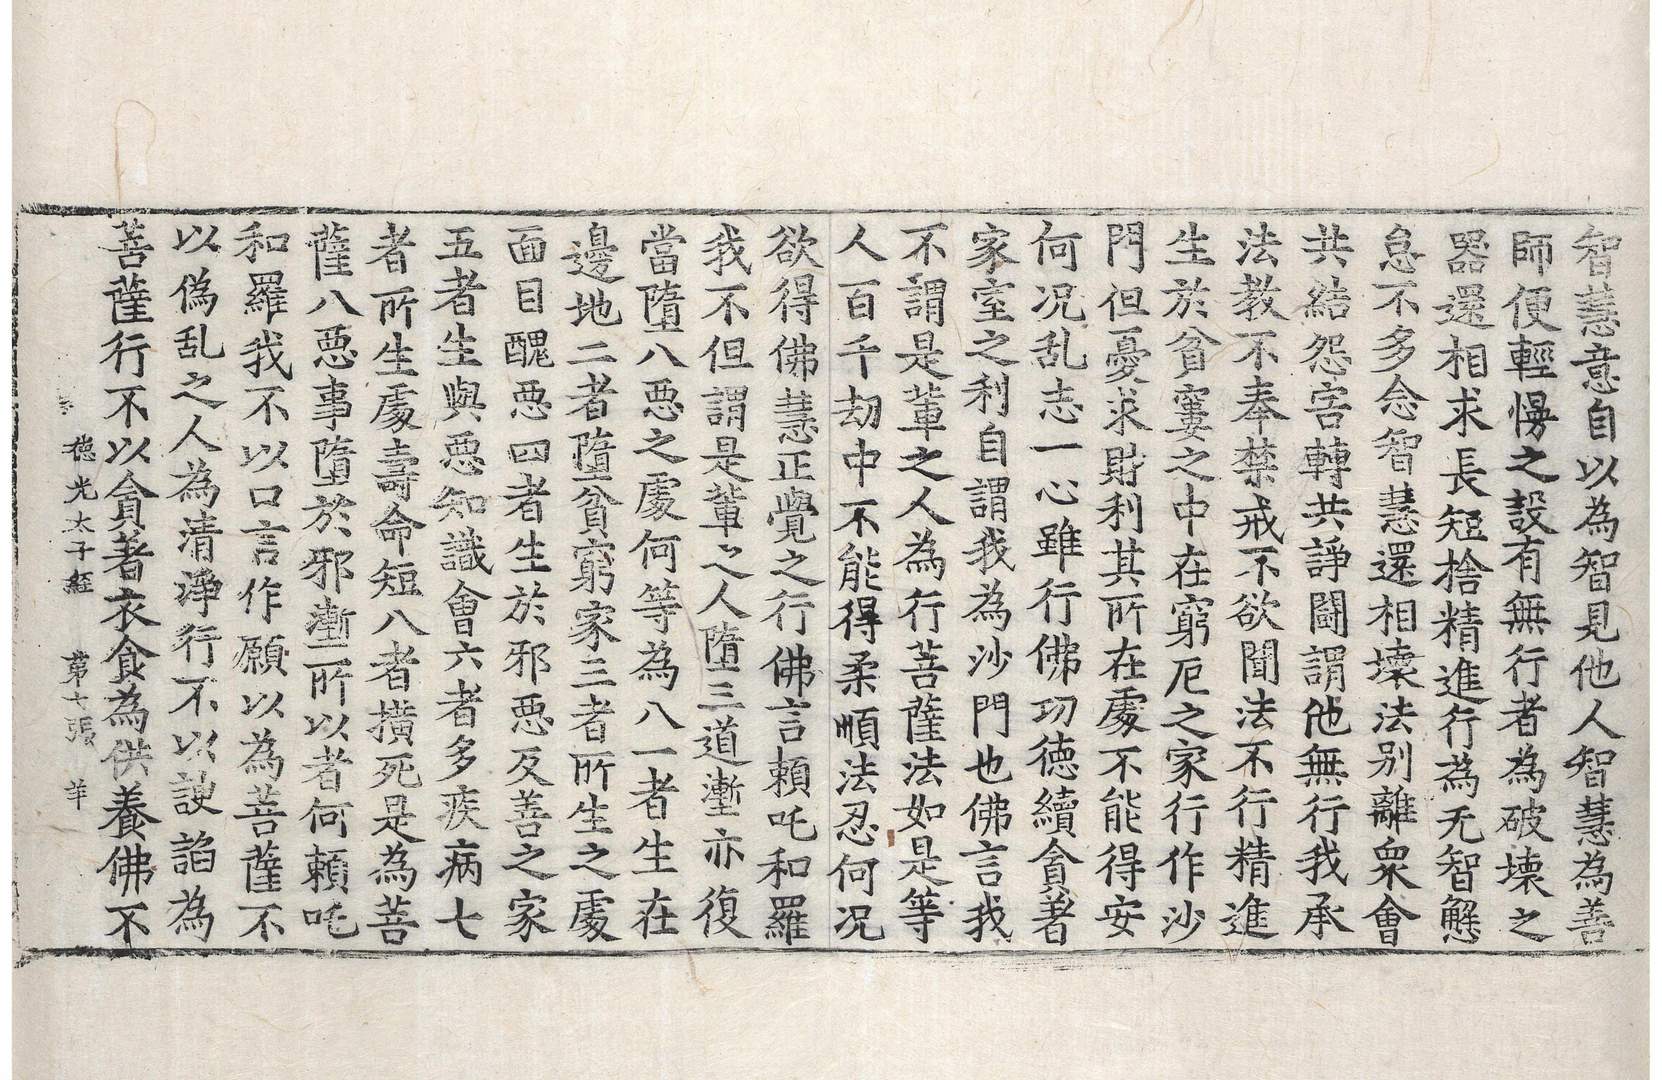 智慧意自以為智見他人智慧為善
師便輕慢之設有無行者為破壞之
器還相求長短捨精進行為无智懈
怠不多念智慧還相壞法别離衆會
共結怨害轉共諍鬪謂他無行我承
法教不奉禁戒不欲聞法不行精進
生於貧窶之中在窮厄之家行作沙
門但憂求財利其所在處不能得安
何况乱志一心雖行佛功德續貪著
家室之利自謂我為沙門也佛言我
不謂是輩之人為行菩薩法如是等
人百千劫中不能得柔順法忍何况
欲得佛慧正覺之行佛言賴吒和羅
我不但謂是輩之人墮三道壍亦復
當墮八惡之處何等為八一者生在
邊地二者墮貧窮家三者所生之處
面目醜惡四者生於邪惡反善之家
五者生與惡知識會六者多疾病七
者所生處壽命短八者橫死是為菩
薩八惡事墮於邪壍所以者何賴吒
和羅我不以口言作願以為菩薩不
以偽乱之人為清淨行不以諛諂為
菩薩行不以貪著衣食為供養佛不
德光太子經 第七張 羊